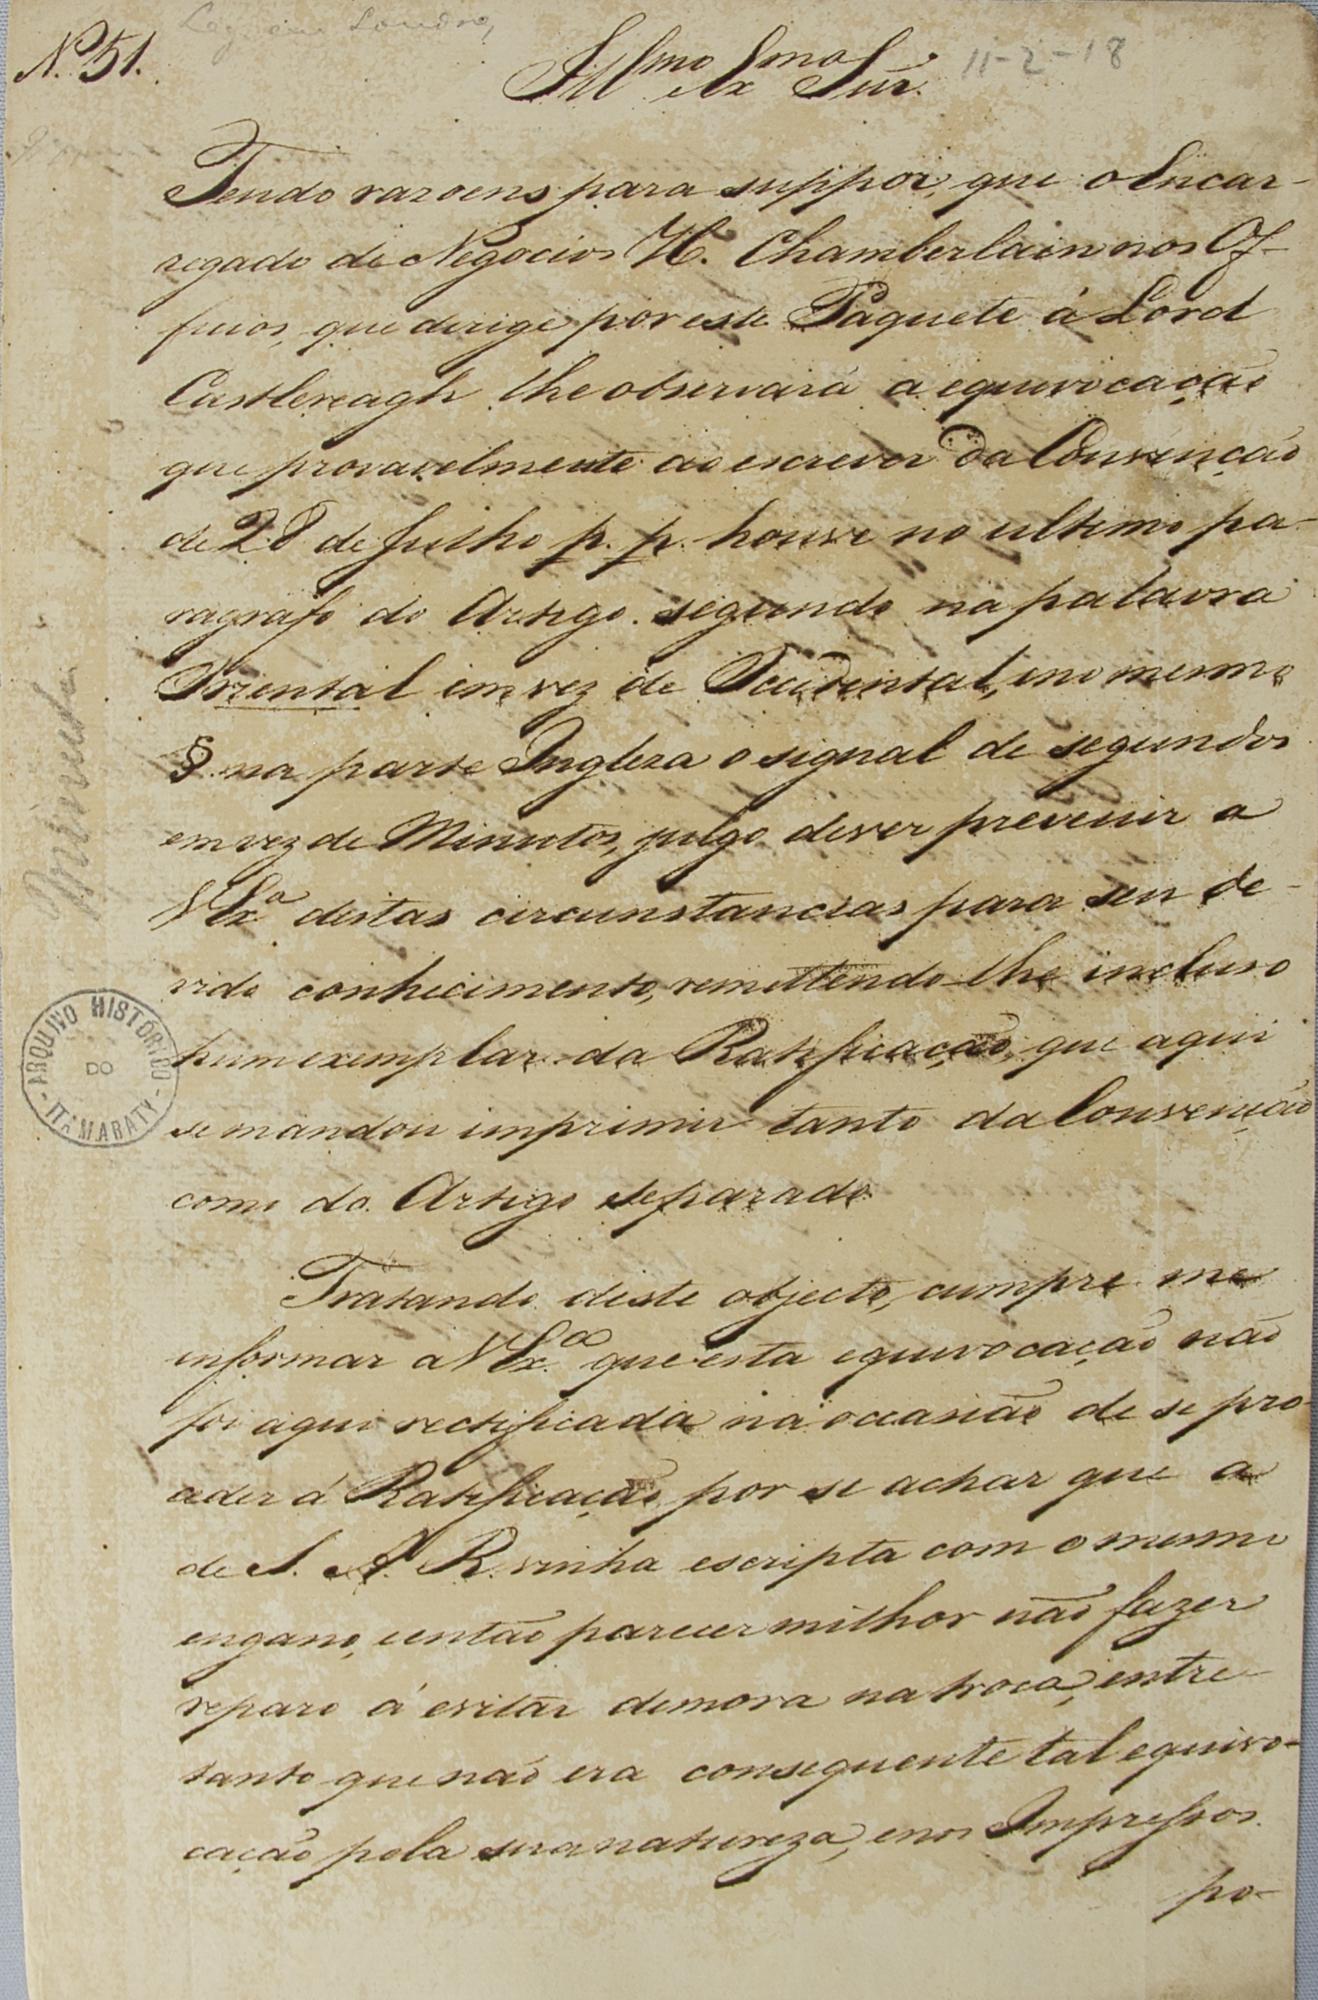 N.º 51.
Leg. em Londres
Illmo Exmo Snr.
11-2-18
Tendo razoens para suppor, que o Encar-
regado de Negocios H. Chamberlain nos Of-
ficios, que dirige por este Paquete á Lord
Castlereagh lhe observará a equivocação
que provavelmente ao escrever da Convenção
de 28 de Julho p. p. houve no ultimo pa-
ragrafo do Artigo segundo na palavra
Oriental em vez de Occidental, e no mesmo
§ na parte Ingleza o signal de segundos
em vez de Minutos, julgo dever prevenir a
V Exa destas circunstancias para seu de-
vido conhecimento, remettendo-lhe incluso
hum exemplar da Ratificação, que aqui
se mandou imprimir tanto da Convenção
como do Artigo separado.
Tratando deste objecto, cumpre me
informar a V Exa que esta equivocação não
foi aqui rectificada na occasião de se pro-
ceder á Ratificação, por se achar que a
de S. A. R. vinha escripta com o mesmo
engano, e então parecer milhor não fazer
reparo á evitar demora na troca, entre
tanto que não era consequente tal equivo-
cação pela sua natureza, e nos Impressos
po-
Minuta
ARQUIVO HISTORICO
DO
ITAMARATY